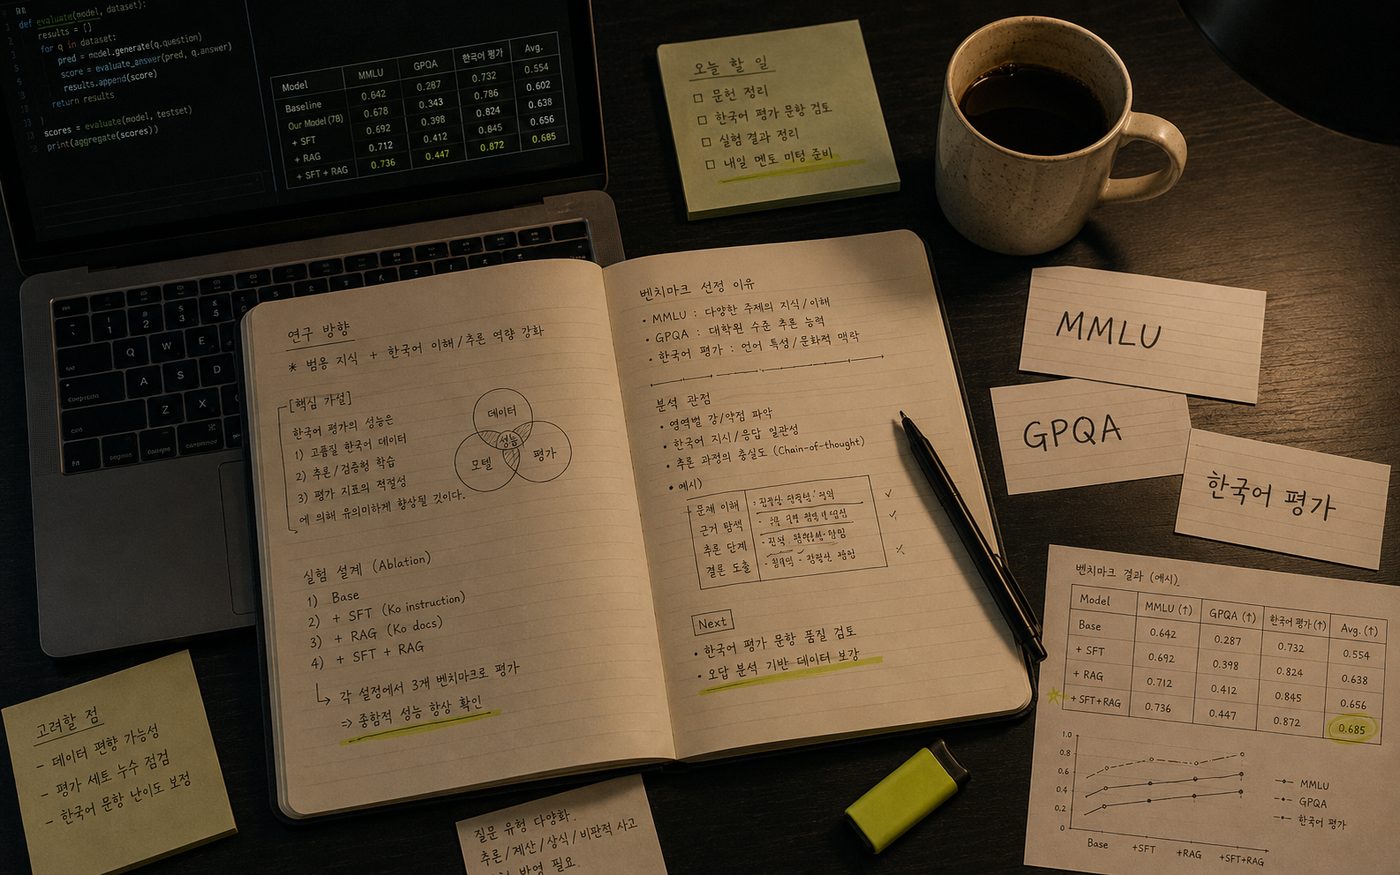 def evaluate(model, dataset):
results = []
for q in dataset:
pred = model.generate(q.question)
score = evaluate_answer(pred, q.answer)
results.append(score)
return results
scores = evaluate(model, testset)
print(aggregate(scores))
Model MMLU GPQA 한국어 평가 Avg.
Baseline 0.642 0.287 0.732 0.554
Our Model (7B) 0.678 0.343 0.786 0.602
+ SFT 0.692 0.398 0.824 0.638
+ RAG 0.712 0.412 0.845 0.656
+ SFT + RAG 0.736 0.447 0.872 0.685
오늘 할 일
□ 문헌 정리
□ 한국어 평가 문항 검토
□ 실험 결과 정리
□ 내일 멘토 미팅 준비
연구 방향
* 범용 지식 + 한국어 이해/추론 역량 강화
[핵심 가설]
한국어 평가의 성능은
1) 고품질 한국어 데이터
2) 추론/검증형 학습
3) 평가 지표의 적절성
에 의해 유의미하게 향상될 것이다.
데이터
성능
모델
평가
실험 설계 (Ablation)
1) Base
2) + SFT (Ko instruction)
3) + RAG (Ko docs)
4) + SFT + RAG
각 설정에서 3개 벤치마크로 평가
=> 종합적 성능 향상 확인
벤치마크 선정 이유
• MMLU : 다양한 주제의 지식/이해
• GPQA : 대학원 수준 추론 능력
• 한국어 평가 : 언어 특성/문화적 맥락
분석 관점
• 영역별 강/약점 파악
• 한국어 지시/응답 일관성
• 추론 과정의 충실도 (Chain-of-thought)
• 예시)
문제 이해
근거 탐색
추론 단계
결론 도출
Next
• 한국어 평가 문항 품질 검토
• 오답 분석 기반 데이터 보강
MMLU
GPQA
한국어 평가
벤치마크 결과 (예시)
Model MMLU (↑) GPQA (↑) 한국어 평가 (↑) Avg. (↑)
Base 0.642 0.287 0.732 0.554
+ SFT 0.692 0.398 0.824 0.638
+ RAG 0.712 0.412 0.845 0.656
* + SFT+RAG 0.736 0.447 0.872 0.685
1.0
0.8
0.6
0.4
0.2
0
Base +SFT +RAG +SFT+RAG
MMLU
GPQA
한국어 평가
고려할 점
- 데이터 편향 가능성
- 평가 세트 누수 점검
- 한국어 문항 난이도 보정
질문 유형 다양화.
추론/계산/상식/비판적 사고
반영 필요.